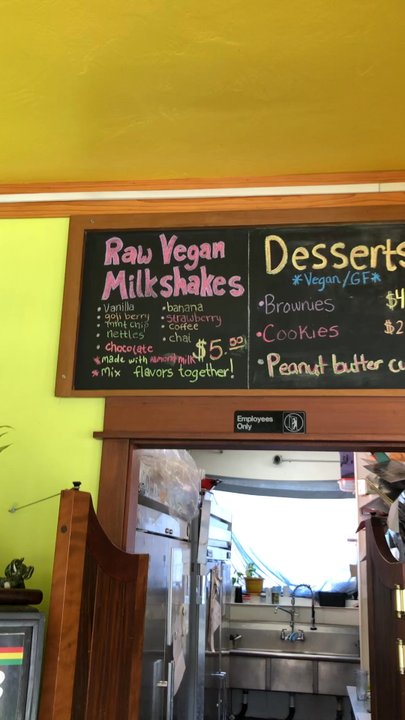 Raw Vegan
Milkshakes
• Vanilla
• goji berry
• mint chip
• nettles
• chocolate
• banana
• strawberry
• coffee
• chai
* made with almond milk
$5.00
* Mix flavors together!
Desserts
*Vegan/GF*
• Brownies $4
• Cookies $2
• Peanut butter cu
Employees
Only